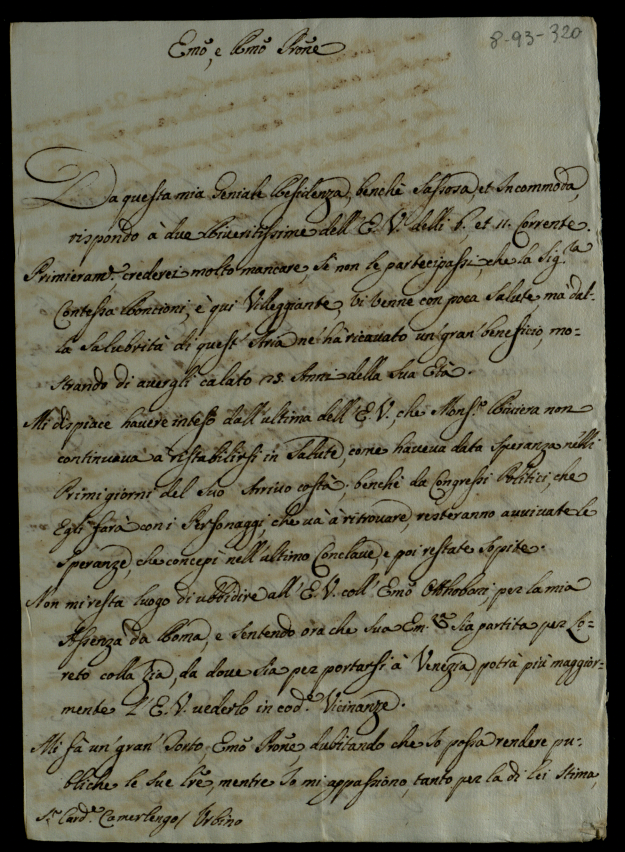 8-93-320
Emo, e Rmo Prone
Da questa mia Geniale Residenza, benchè Sassosa, et Incommoda,
rispondo à due Riveritissime dell'E. V. delli 8. et 11. Corrente.
Primieramte. crederei molto mancare, se non le partecipassi, che la Sig.ra
Contessa Roncioni, è qui Villeggiante, vi venne con poca Salute, mà dal-
la Salubrità di quest'Aria ne hà ricavato un'gran' beneficio, mo-
strando di avergli calato Anni della Sua Età.
Mi dispiace havere inteso dall'ultima dell'E. V., che Mons.r Riviera non
continuava a ristabilirsi in Salute, come haveva data Speranza nelli
Primi giorni del suo Arrivo costà; benchè da Congressi Politici, che
Egli farà con i Personaggi, che và à ritrovare, resteranno avvivate le
Speranze, che concepì nell'ultimo Conclave, e poi restate Sopite.
Non mi resta luogo di ubbidire all'E. V. coll'Emo Otthoboni, per la mia
Assenza da Roma, e sentendo ora che Sua Em.za Sia partita per Lo-
reto colla Zia, da dove Sia per portarsi à Venezia, potrà più maggior-
mente l'E. V. vederlo in cod.e Vicinanze.
Mi fà un'gran'Torto Emo Prone, dubitando che Io possa rendere pu-
bliche le Sue Lre, mentre Io mi appassiono, tanto per la di lei Stima,
Sr. Card.e Camerlengo / Urbino